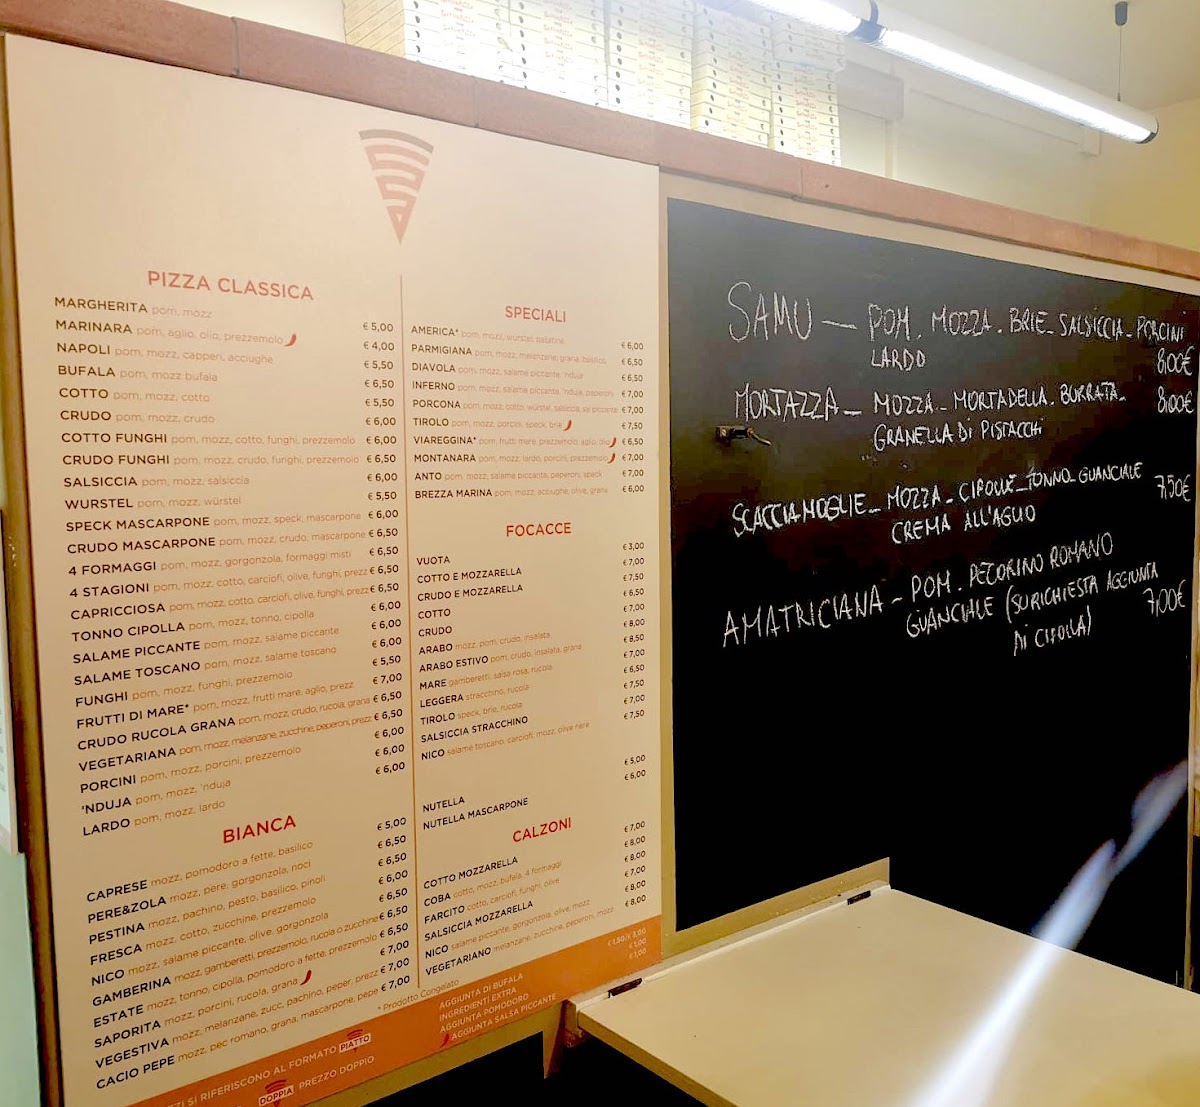 PIZZA CLASSICA
MARGHERITA pom, mozz € 5,00
MARINARA pom, aglio, olio, prezzemolo € 4,00
NAPOLI pom, mozz, capperi, acciughe € 5,50
BUFALA pom, mozz bufala € 6,50
COTTO pom, mozz, cotto € 5,50
CRUDO pom, mozz, crudo € 6,00
COTTO FUNGHI pom, mozz, cotto, funghi, prezzemolo € 6,00
CRUDO FUNGHI pom, mozz, crudo, funghi, prezzemolo € 6,50
SALSICCIA pom, mozz, salsiccia € 6,00
WURSTEL pom, mozz, würstel € 5,50
SPECK MASCARPONE pom, mozz, speck, mascarpone € 6,00
CRUDO MASCARPONE pom, mozz, crudo, mascarpone € 6,50
4 FORMAGGI pom, mozz, gorgonzola, formaggi misti € 6,50
4 STAGIONI pom, mozz, cotto, carciofi, olive, funghi, prezz € 6,50
CAPRICCIOSA pom, mozz, cotto, carciofi, olive, funghi, prezz € 6,50
TONNO CIPOLLA pom, mozz, tonno, cipolla € 6,00
SALAME PICCANTE pom, mozz, salame piccante € 6,00
SALAME TOSCANO pom, mozz, salame toscano € 6,00
FUNGHI pom, mozz, funghi, prezzemolo € 5,50
FRUTTI DI MARE* pom, mozz, frutti mare, aglio, prezz € 7,00
CRUDO RUCOLA GRANA pom, mozz, crudo, rucola, grana € 6,50
VEGETARIANA pom, mozz, melanzane, zucchine, peperoni, prezz € 6,50
PORCINI pom, mozz, porcini, prezzemolo € 6,00
'NDUJA pom, mozz, 'nduja € 6,00
LARDO pom, mozz, lardo € 6,00
BIANCA
CAPRESE mozz, pomodoro a fette, basilico € 5,00
PERE&ZOLA mozz, pere, gorgonzola, noci € 6,50
PESTINA mozz, pachino, pesto, basilico, pinoli € 6,50
FRESCA mozz, cotto, zucchine, prezzemolo € 6,00
NICO mozz, salame piccante, olive, gorgonzola € 6,50
GAMBERINA mozz, gamberetti, prezzemolo, rucola o zucchine € 6,50
ESTATE mozz, tonno, cipolla, pomodoro a fette, prezzemolo € 6,50
SAPORITA mozz, porcini, rucola, grana € 7,00
VEGESTIVA mozz, melanzane, zucc, pachino, peper, prezz € 7,00
CACIO PEPE mozz, pec romano, grana, mascarpone, pepe € 7,00
SPECIALI
AMERICA* pom, mozz, wurstel, patatine € 6,00
PARMIGIANA pom, mozz, melanzane, grana, basilico € 6,50
DIAVOLA pom, mozz, salame piccante, 'nduja € 6,50
INFERNO pom, mozz, salame piccante, 'nduja, peperoni € 7,00
PORCONA pom, mozz, cotto, würstel, salsiccia, sal piccante € 7,00
TIROLO pom, mozz, porcini, speck, brie € 7,50
VIAREGGINA* pom, frutti mare, prezzemolo, aglio, olio € 6,50
MONTANARA pom, mozz, lardo, porcini, prezzemolo € 7,00
ANTO pom, mozz, salame piccante, peperoni, speck € 7,00
BREZZA MARINA pom, mozz, acciughe, olive, grana € 6,00
FOCACCE
VUOTA € 3,00
COTTO E MOZZARELLA € 7,00
CRUDO E MOZZARELLA € 7,50
COTTO € 6,50
CRUDO € 7,00
ARABO mozz, pom, crudo, insalata € 8,00
ARABO ESTIVO pom, crudo, insalata, grana € 8,50
MARE gamberetti, salsa rosa, rucola € 7,00
LEGGERA stracchino, rucola € 6,50
TIROLO speck, brie, rucola € 7,50
SALSICCIA STRACCHINO € 7,00
NICO salame toscano, carciofi, mozz, olive nere € 7,50
NUTELLA € 5,00
NUTELLA MASCARPONE € 6,00
CALZONI
COTTO MOZZARELLA € 7,00
COBA cotto, mozz, bufala, 4 formaggi € 8,00
FARCITO cotto, carciofi, funghi, olive € 8,00
SALSICCIA MOZZARELLA € 7,00
NICO salame piccante, gorgonzola, olive, mozz € 8,00
VEGETARIANO melanzane, zucchine, peperoni, mozz € 8,00
* Prodotto Congelato
AGGIUNTA DI BUFALA € 1,50/€ 3,00
INGREDIENTI EXTRA € 1,00
AGGIUNTA POMODORO € 1,00
AGGIUNTA SALSA PICCANTE
SI RIFERISCONO AL FORMATO PIATTO
DOPPIA PREZZO DOPPIO
SAMU — POM. MOZZA. BRIE. SALSICCIA. PORCINI
LARDO 8,00€
MORTAZZA - MOZZA. MORTADELLA. BURRATA. 8,00€
GRANELLA DI PISTACCHI
SCACCIAMOGLIE - MOZZA - CIPOLLE - TONNO - GUANCIALE
CREMA ALL'AGLIO 7,50€
AMATRICIANA - POM. PECORINO ROMANO
GUANCIALE (SU RICHIESTA AGGIUNTA
DI CIPOLLA) 7,00€